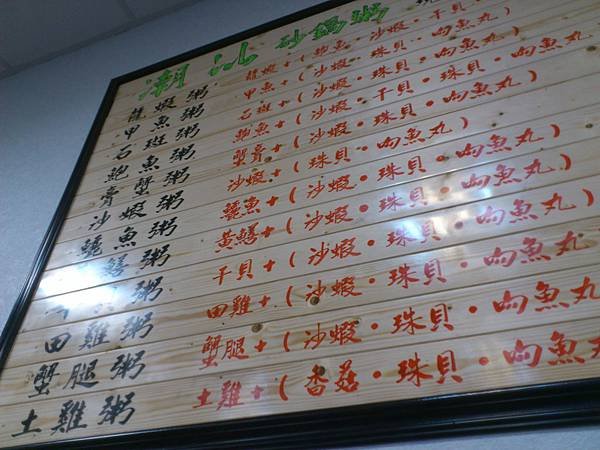 潮汕砂鍋粥
龍蝦粥 龍蝦+(鮑魚・沙蝦・干貝・
甲魚粥 甲魚+(沙蝦・珠貝・向魚丸)
石斑粥 石斑+(沙蝦・珠貝・向魚丸)
鮑魚粥 鮑魚+(沙蝦・干貝・珠貝・向魚丸)
膏蟹粥 蟹膏+(沙蝦・珠貝・向魚丸)
沙蝦粥 沙蝦+(珠貝・向魚丸)
鱙魚粥 鱙魚+(沙蝦・珠貝・向魚丸)
鱔粥 黃鱔+(沙蝦・珠貝・向魚丸)
粥 干貝+(沙蝦・珠貝・向魚丸)
田雞粥 田雞+(沙蝦・珠貝・向魚丸
蟹腿粥 蟹腿+(沙蝦・珠貝・向魚丸
土雞粥 土雞+(香菇・珠貝・向魚